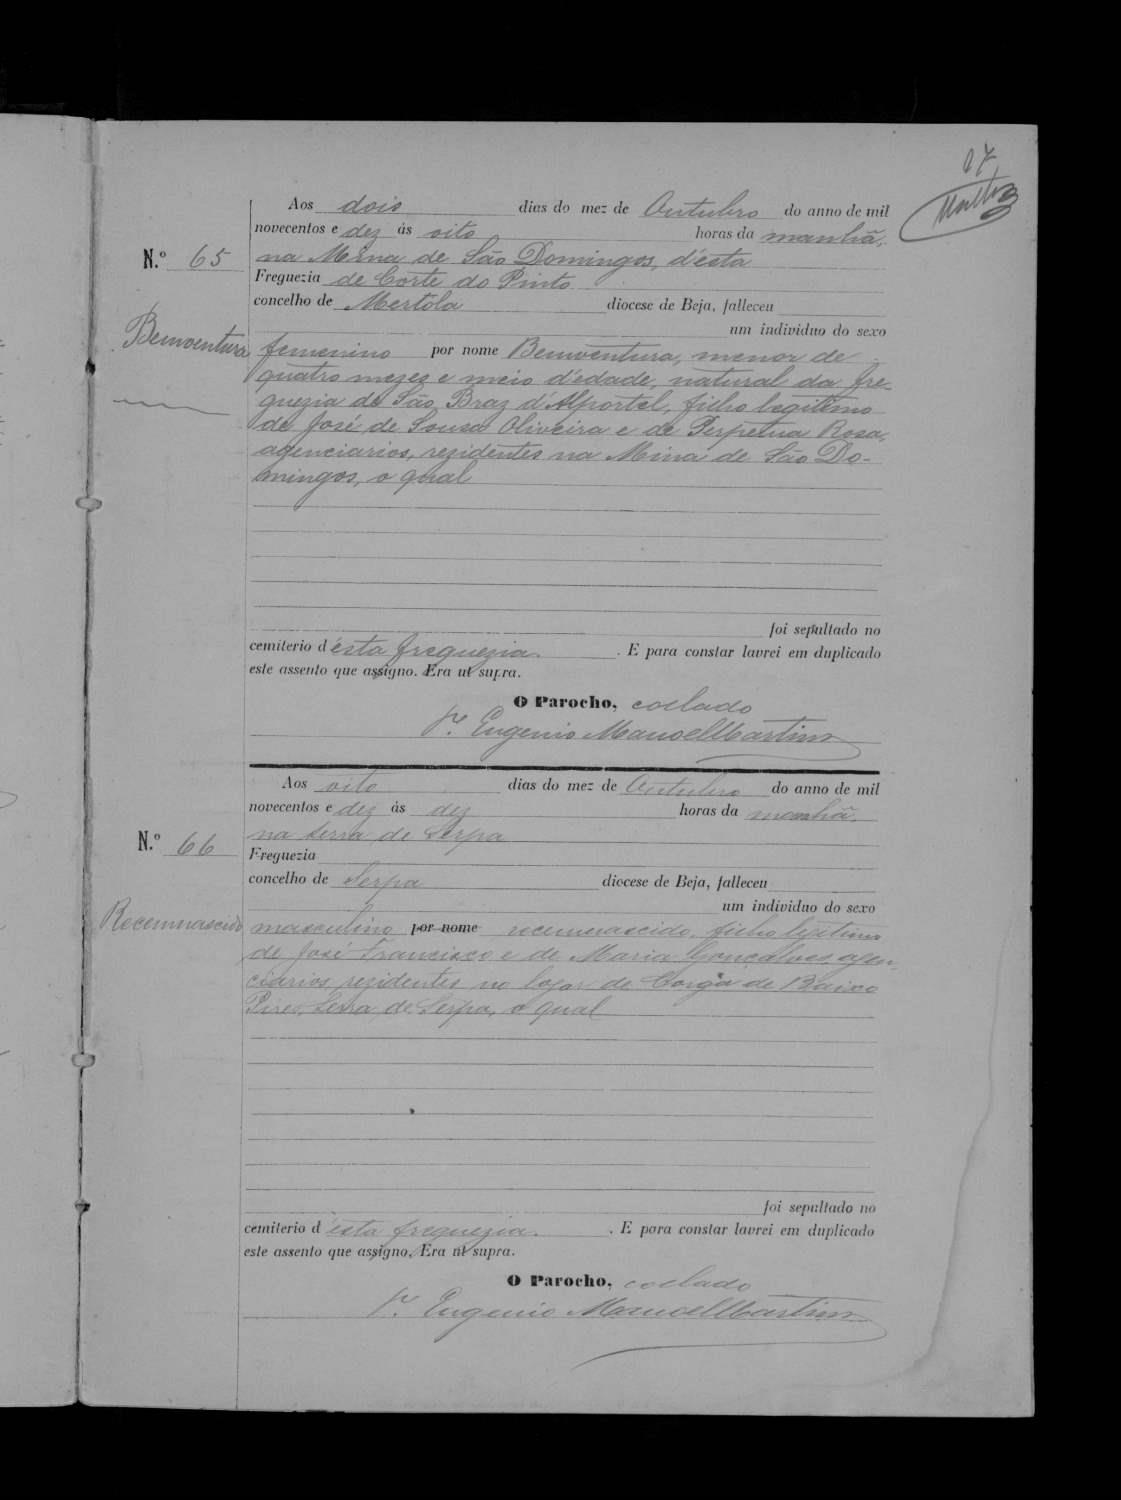 17
Aos dois dias do mez de Outubro do anno de mil
novecentos e dez ás oito horas da manhã,
N.º 65
na Mina de São Domingos, d'esta
Freguezia de Corte do Pinto
concelho de Mertola diocese de Beja, falleceu
um individuo do sexo
Bemventura
femenino por nome Bemventura, menor de
quatro mezes e meio d'edade, natural da fre-
guezia de São Braz d'Alportel, filho legitimo
de José de Sousa Oliveira e de Perpetua Rosa,
agenciarios, rezidentes na Mina de São Do-
mingos, o qual
foi sepultado no
cemiterio d'esta freguezia. E para constar lavrei em duplicado
este assento que assigno. Era ut supra.
O Parocho, collado
Pe. Eugenio Manoel Martins
Aos oito dias do mez de Outubro do anno de mil
novecentos e dez ás dez horas da manhã,
N.º 66
na serra de Serpa
Freguezia
concelho de Serpa diocese de Beja, falleceu
um individuo do sexo
Recemnascido
masculino por nome recemnascido, filho legitimo
de José Francisco e de Maria Gonçalves, agen-
ciarios, rezidentes no logar de Corga de Baixo
Pires, Serra de Serpa, o qual
foi sepultado no
cemiterio d'esta freguezia. E para constar lavrei em duplicado
este assento que assigno, Era ut supra.
O Parocho, collado
Pe. Eugenio Manoel Martins